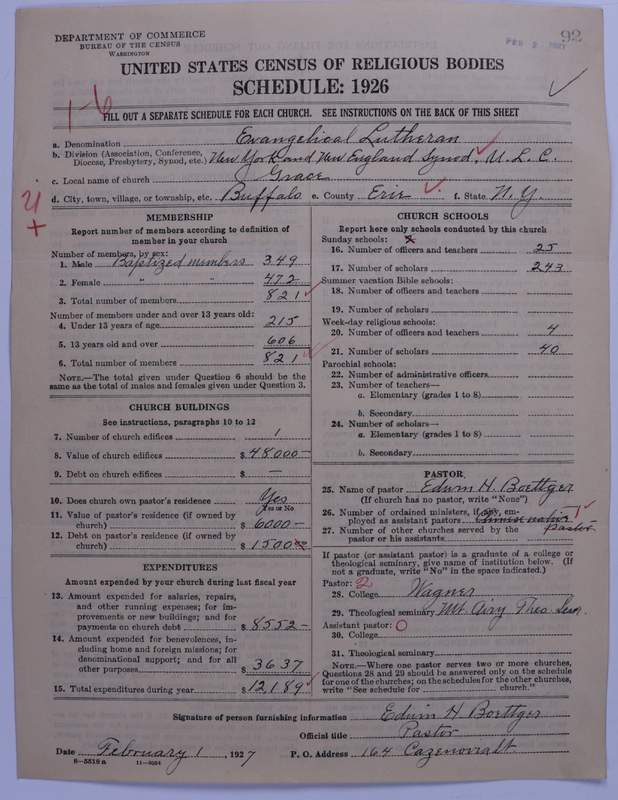 DEPARTMENT OF COMMERCE
BUREAU OF THE CENSUS
WASHINGTON
92
FEB 2 1927
UNITED STATES CENSUS OF RELIGIOUS BODIES
SCHEDULE: 1926
1-6
FILL OUT A SEPARATE SCHEDULE FOR EACH CHURCH. SEE INSTRUCTIONS ON THE BACK OF THIS SHEET
a. Denomination Evangelical Lutheran
b. Division (Association, Conference, Diocese, Presbytery, Synod, etc.) New York and New England Synod, U. L. C.
c. Local name of church Grace
d. City, town, village, or township, etc. Buffalo e. County Erie f. State N. Y.
MEMBERSHIP
Report number of members according to definition of
member in your church
Number of members, by sex:
1. Male Baptized members 349
2. Female " " 472
3. Total number of members 821
Number of members under and over 13 years old:
4. Under 13 years of age 215
5. 13 years old and over 606
6. Total number of members 821
NOTE.—The total given under Question 6 should be the
same as the total of males and females given under Question 3.
CHURCH BUILDINGS
See instructions, paragraphs 10 to 12
7. Number of church edifices 1
8. Value of church edifices $ 48000—
9. Debt on church edifices $ —
10. Does church own pastor's residence Yes
Yes or No
11. Value of pastor's residence (if owned by
church) $ 6000—
12. Debt on pastor's residence (if owned by
church) $ 1500
EXPENDITURES
Amount expended by your church during last fiscal year
13. Amount expended for salaries, repairs,
and other running expenses; for im-
provements or new buildings; and for
payments on church debt $ 8552—
14. Amount expended for benevolences, in-
cluding home and foreign missions; for
denominational support; and for all
other purposes $ 3637
15. Total expenditures during year $ 12189
CHURCH SCHOOLS
Report here only schools conducted by this church
Sunday schools:
16. Number of officers and teachers 25
17. Number of scholars 243
Summer vacation Bible schools:
18. Number of officers and teachers
19. Number of scholars
Week-day religious schools:
20. Number of officers and teachers 4
21. Number of scholars 40
Parochial schools:
22. Number of administrative officers
23. Number of teachers—
a. Elementary (grades 1 to 8)
b. Secondary
24. Number of scholars—
a. Elementary (grades 1 to 8)
b. Secondary
PASTOR
25. Name of pastor Edwin H. Boettger
(If church has no pastor, write "None")
26. Number of ordained ministers, if any, em-
ployed as assistant pastors
27. Number of other churches served by the pastor
pastor or his assistants
If pastor (or assistant pastor) is a graduate of a college or
theological seminary, give name of institution below. (If
not a graduate, write "No" in the space indicated.)
Pastor: 2
28. College Wagner
29. Theological seminary Mt. Airy Theo. Sem.
Assistant pastor: 0
30. College
31. Theological seminary
NOTE.—Where one pastor serves two or more churches,
Questions 28 and 29 should be answered only on the schedule
for one of the churches; on the schedules for the other churches,
write "See schedule for church."
Signature of person furnishing information Edwin H Boettger
Official title Pastor
Date February 1, 1927 P. O. Address 164 Cazenovia St
8—5518a 11—9054